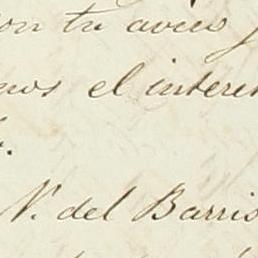 on tu aviso y
nos el interes
N. del Barrio